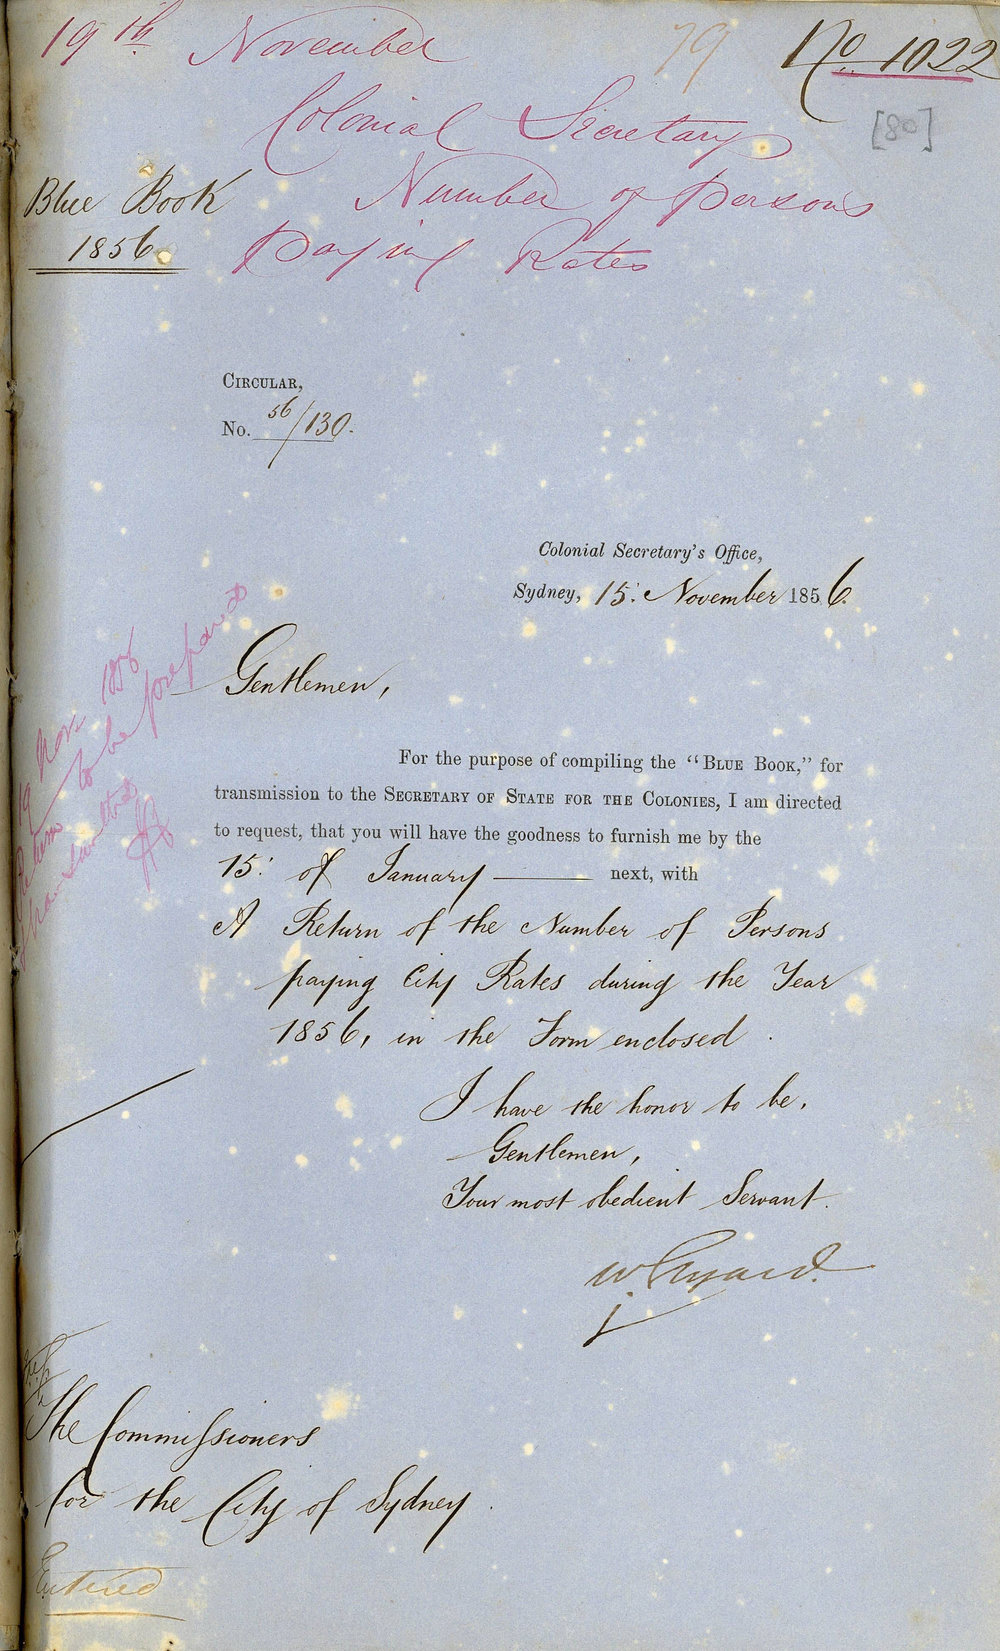 19th November
79
No. 1022
[80]
Colonial Secretary
Number of Persons
Paying Rates
Blue Book
1856.
Circular,
No. 56/130.
Colonial Secretary's Office,
Sydney, 15: November 1856.
19 Nov. 1856
Return to be prepared
transmitted
Gentlemen,
For the purpose of compiling the "Blue Book," for
transmission to the Secretary of State for the Colonies, I am directed
to request, that you will have the goodness to furnish me by the
15: of January ——— next, with
A Return of the Number of Persons
paying City Rates during the Year
1856, in the Form enclosed.
I have the honor to be,
Gentlemen,
Your most obedient Servant.
The Commissioners
for the City of Sydney.
Entered